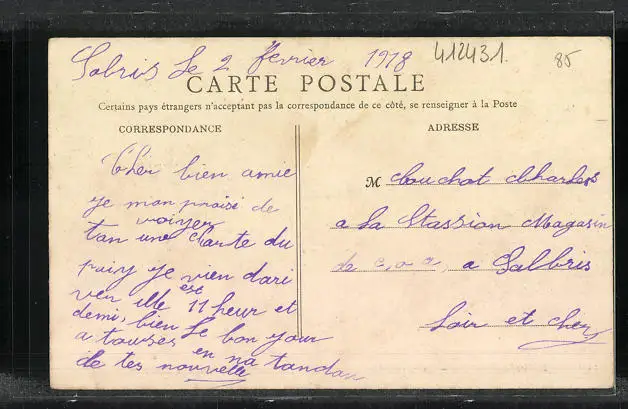 Salbris le 2 février 1918
412431.
85
CARTE POSTALE
Certains pays étrangers n'acceptant pas la correspondance de ce côté, se renseigner à la Poste
CORRESPONDANCE
Cher bien amie
je man praisi de
voiyer
tan une Carte du
paiy je vien dari
ver ille est 11 heur et
demi, bien le bon your
a touses en na tandan
de tes nouvelle
ADRESSE
M Couchot Charles
a la Stassion Magasin
de a Salbris
Loir et cher